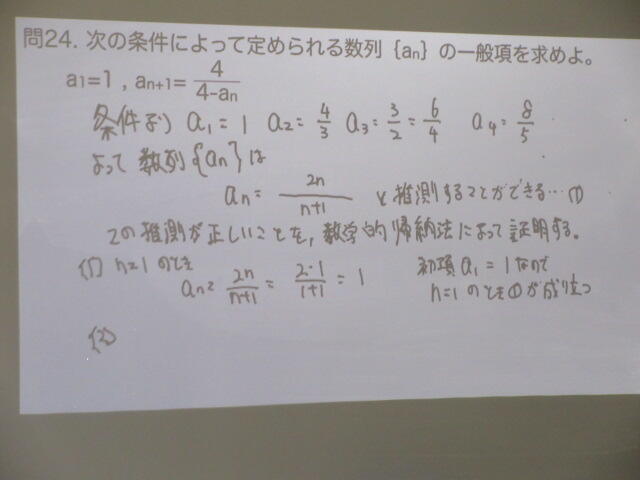 問24. 次の条件によって定められる数列 {an} の一般項を求めよ。
a1=1 , an+1= 4/4-an
条件より a1 = 1 a2 = 4/3 a3 = 3/2 = 6/4 a4 = 8/5
よって 数列{an}は
an = 2n/n+1 と推測することができる…①
この推測が正しいことを, 数学的帰納法によって証明する。
(1) n=1 のとき
an = 2n/n+1 = 2・1/1+1 = 1 初項 a1 = 1 なので
n=1 のとき①が成り立つ
(2)